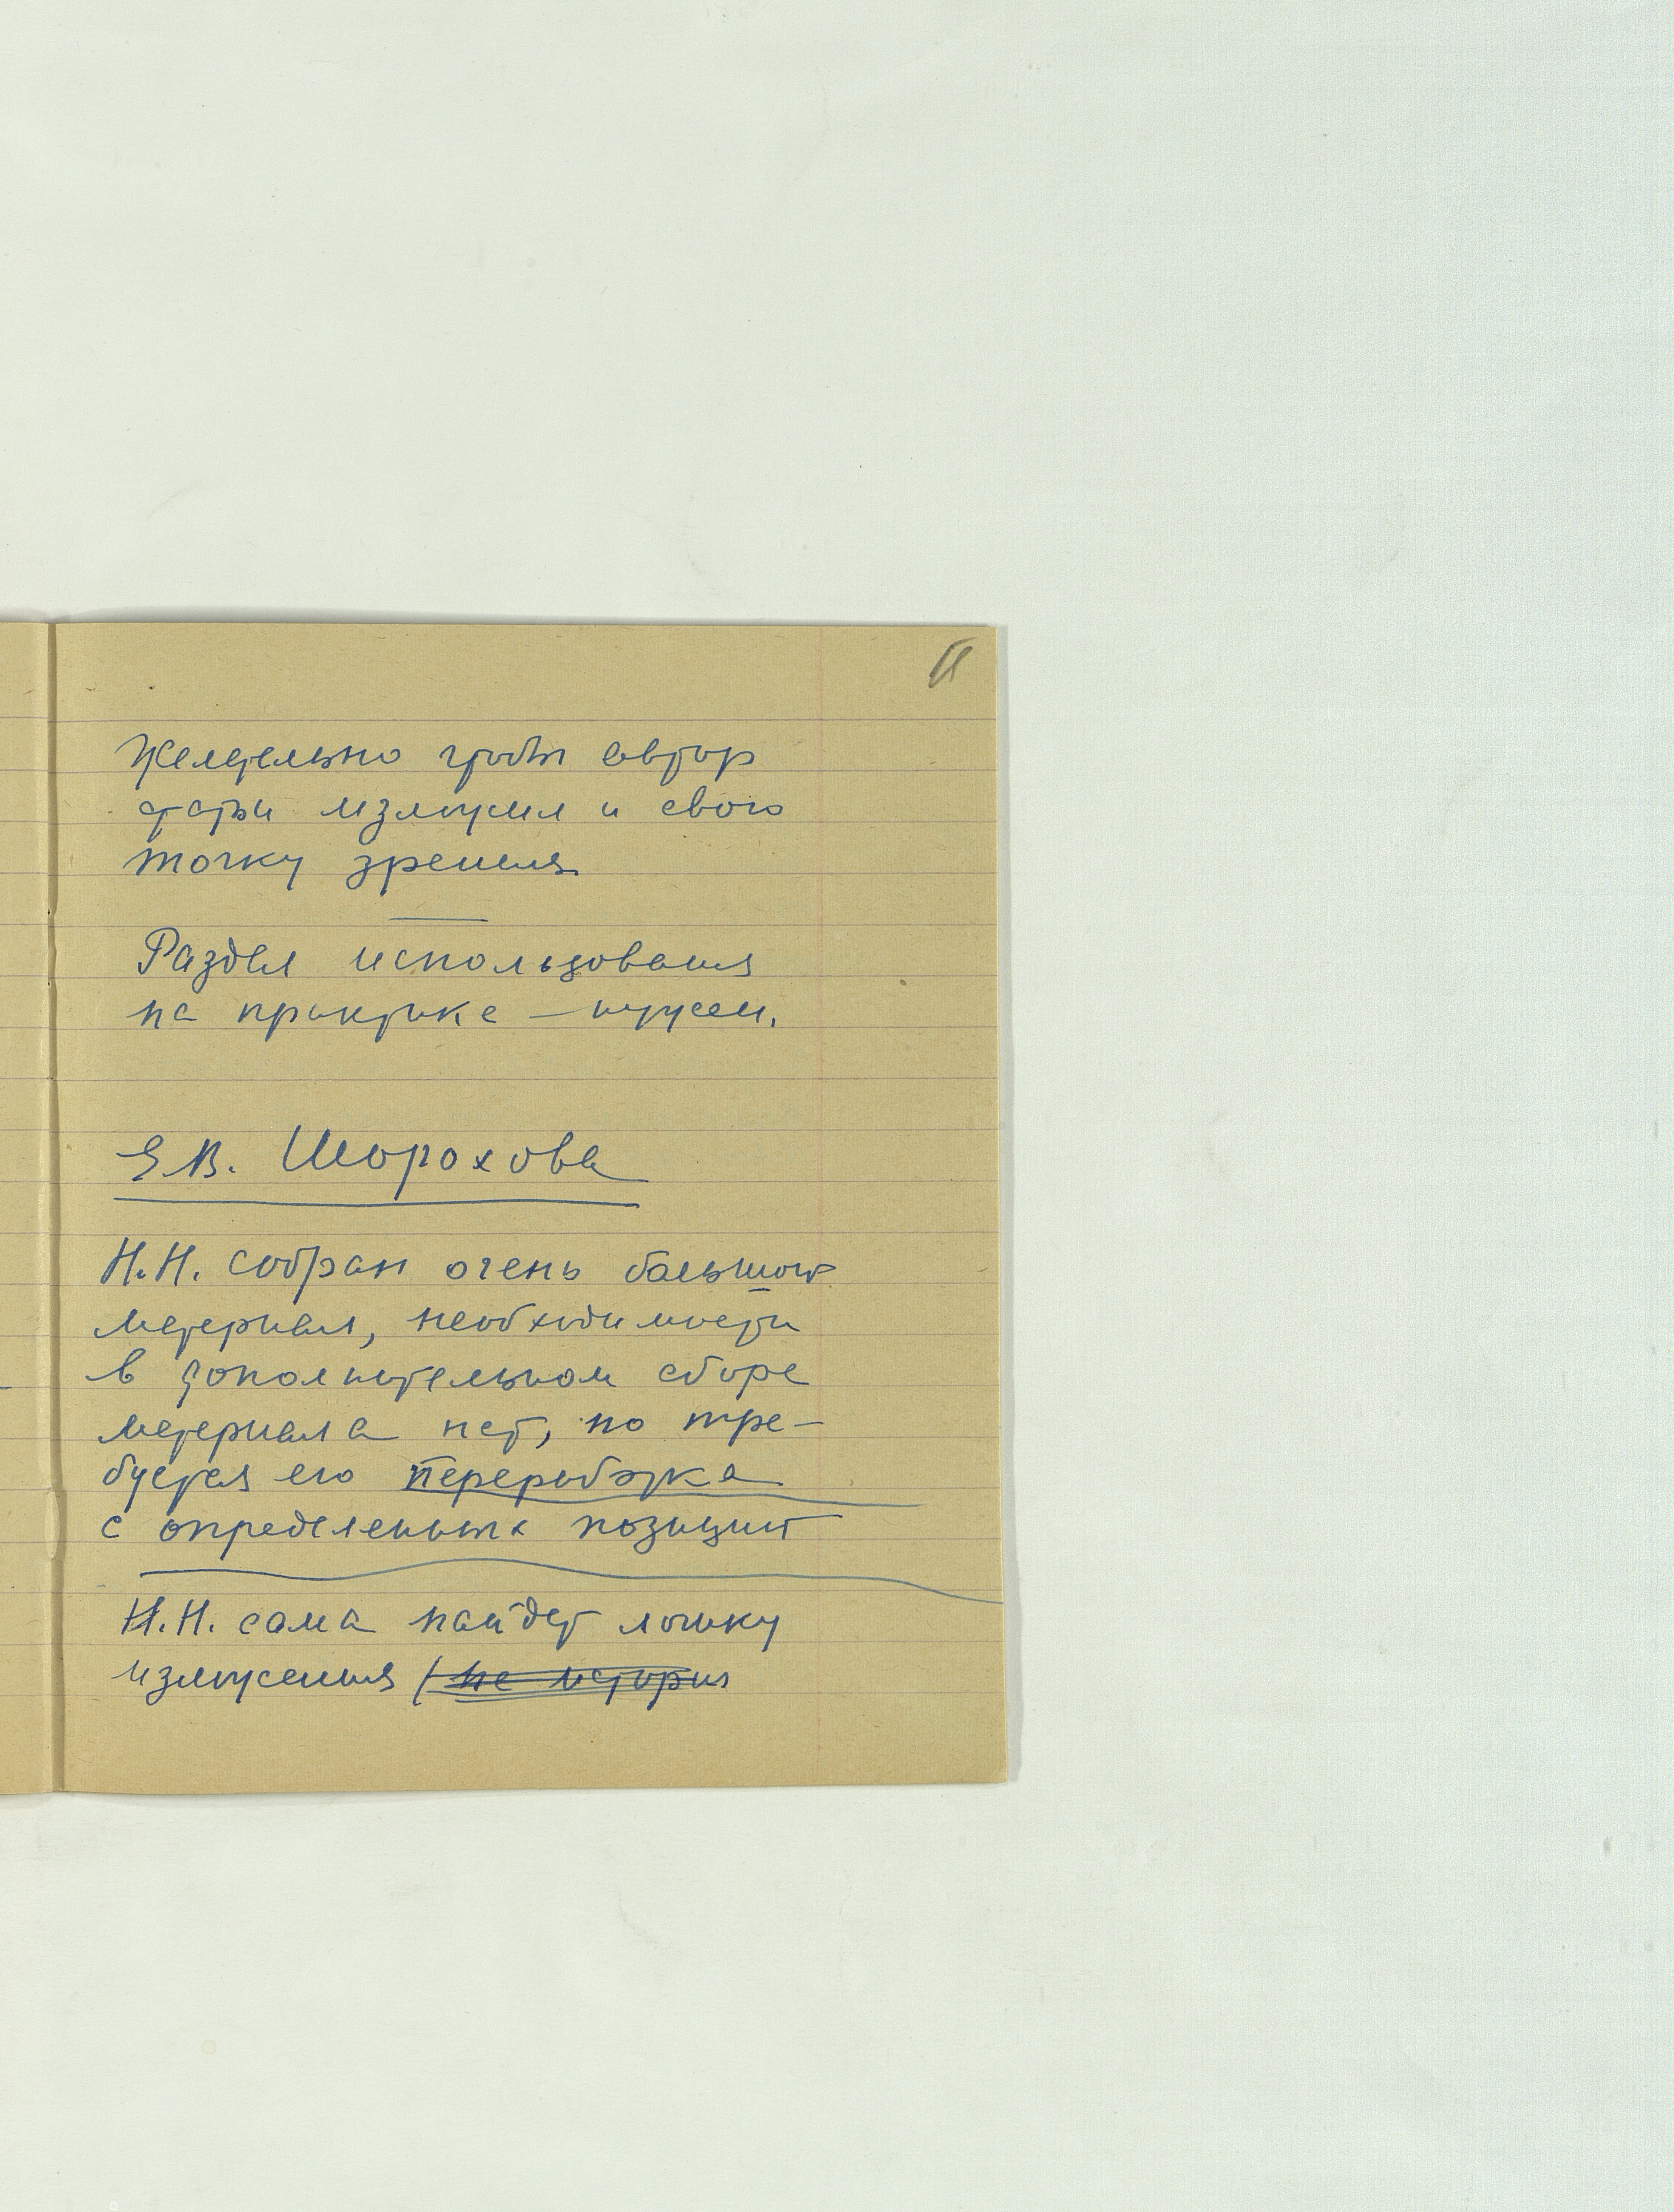 Желательно чтобы автор
статьи изложил и свою
точку зрения
Раздел использования
на практике – нужен.
Е.В. Шорохова
Н.Н. собран очень большой
материал, необходимости
в дополнительном сборе
материала нет, но тре-
буется его переработка
с определенных позиций
Н.Н. сама найдет логику
изложения (не история